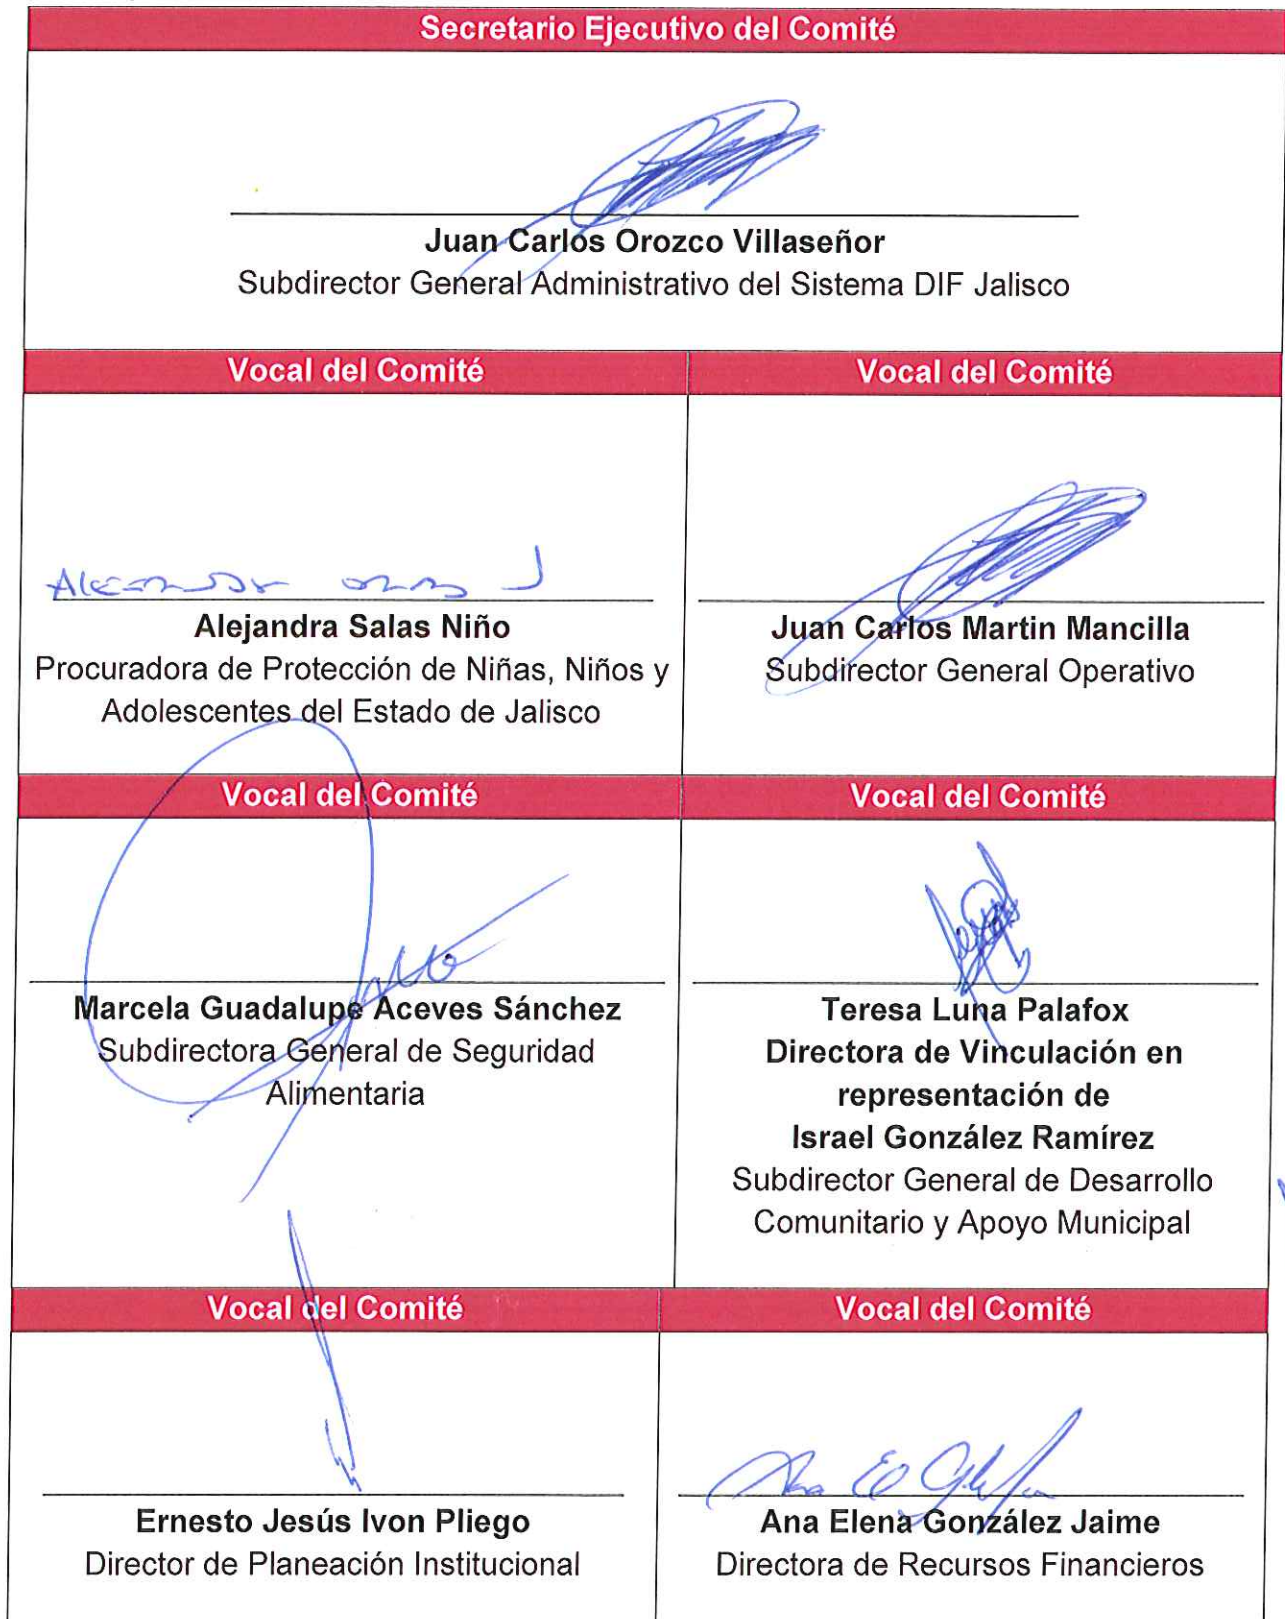 Secretario Ejecutivo del Comité
Juan Carlos Orozco Villaseñor
Subdirector General Administrativo del Sistema DIF Jalisco
Vocal del Comité
Alejandra Salas Niño
Procuradora de Protección de Niñas, Niños y
Adolescentes del Estado de Jalisco
Vocal del Comité
Juan Carlos Martin Mancilla
Subdirector General Operativo
Vocal del Comité
Marcela Guadalupe Aceves Sánchez
Subdirectora General de Seguridad
Alimentaria
Vocal del Comité
Teresa Luna Palafox
Directora de Vinculación en
representación de
Israel González Ramírez
Subdirector General de Desarrollo
Comunitario y Apoyo Municipal
Vocal del Comité
Ernesto Jesús Ivon Pliego
Director de Planeación Institucional
Vocal del Comité
Ana Elena González Jaime
Directora de Recursos Financieros